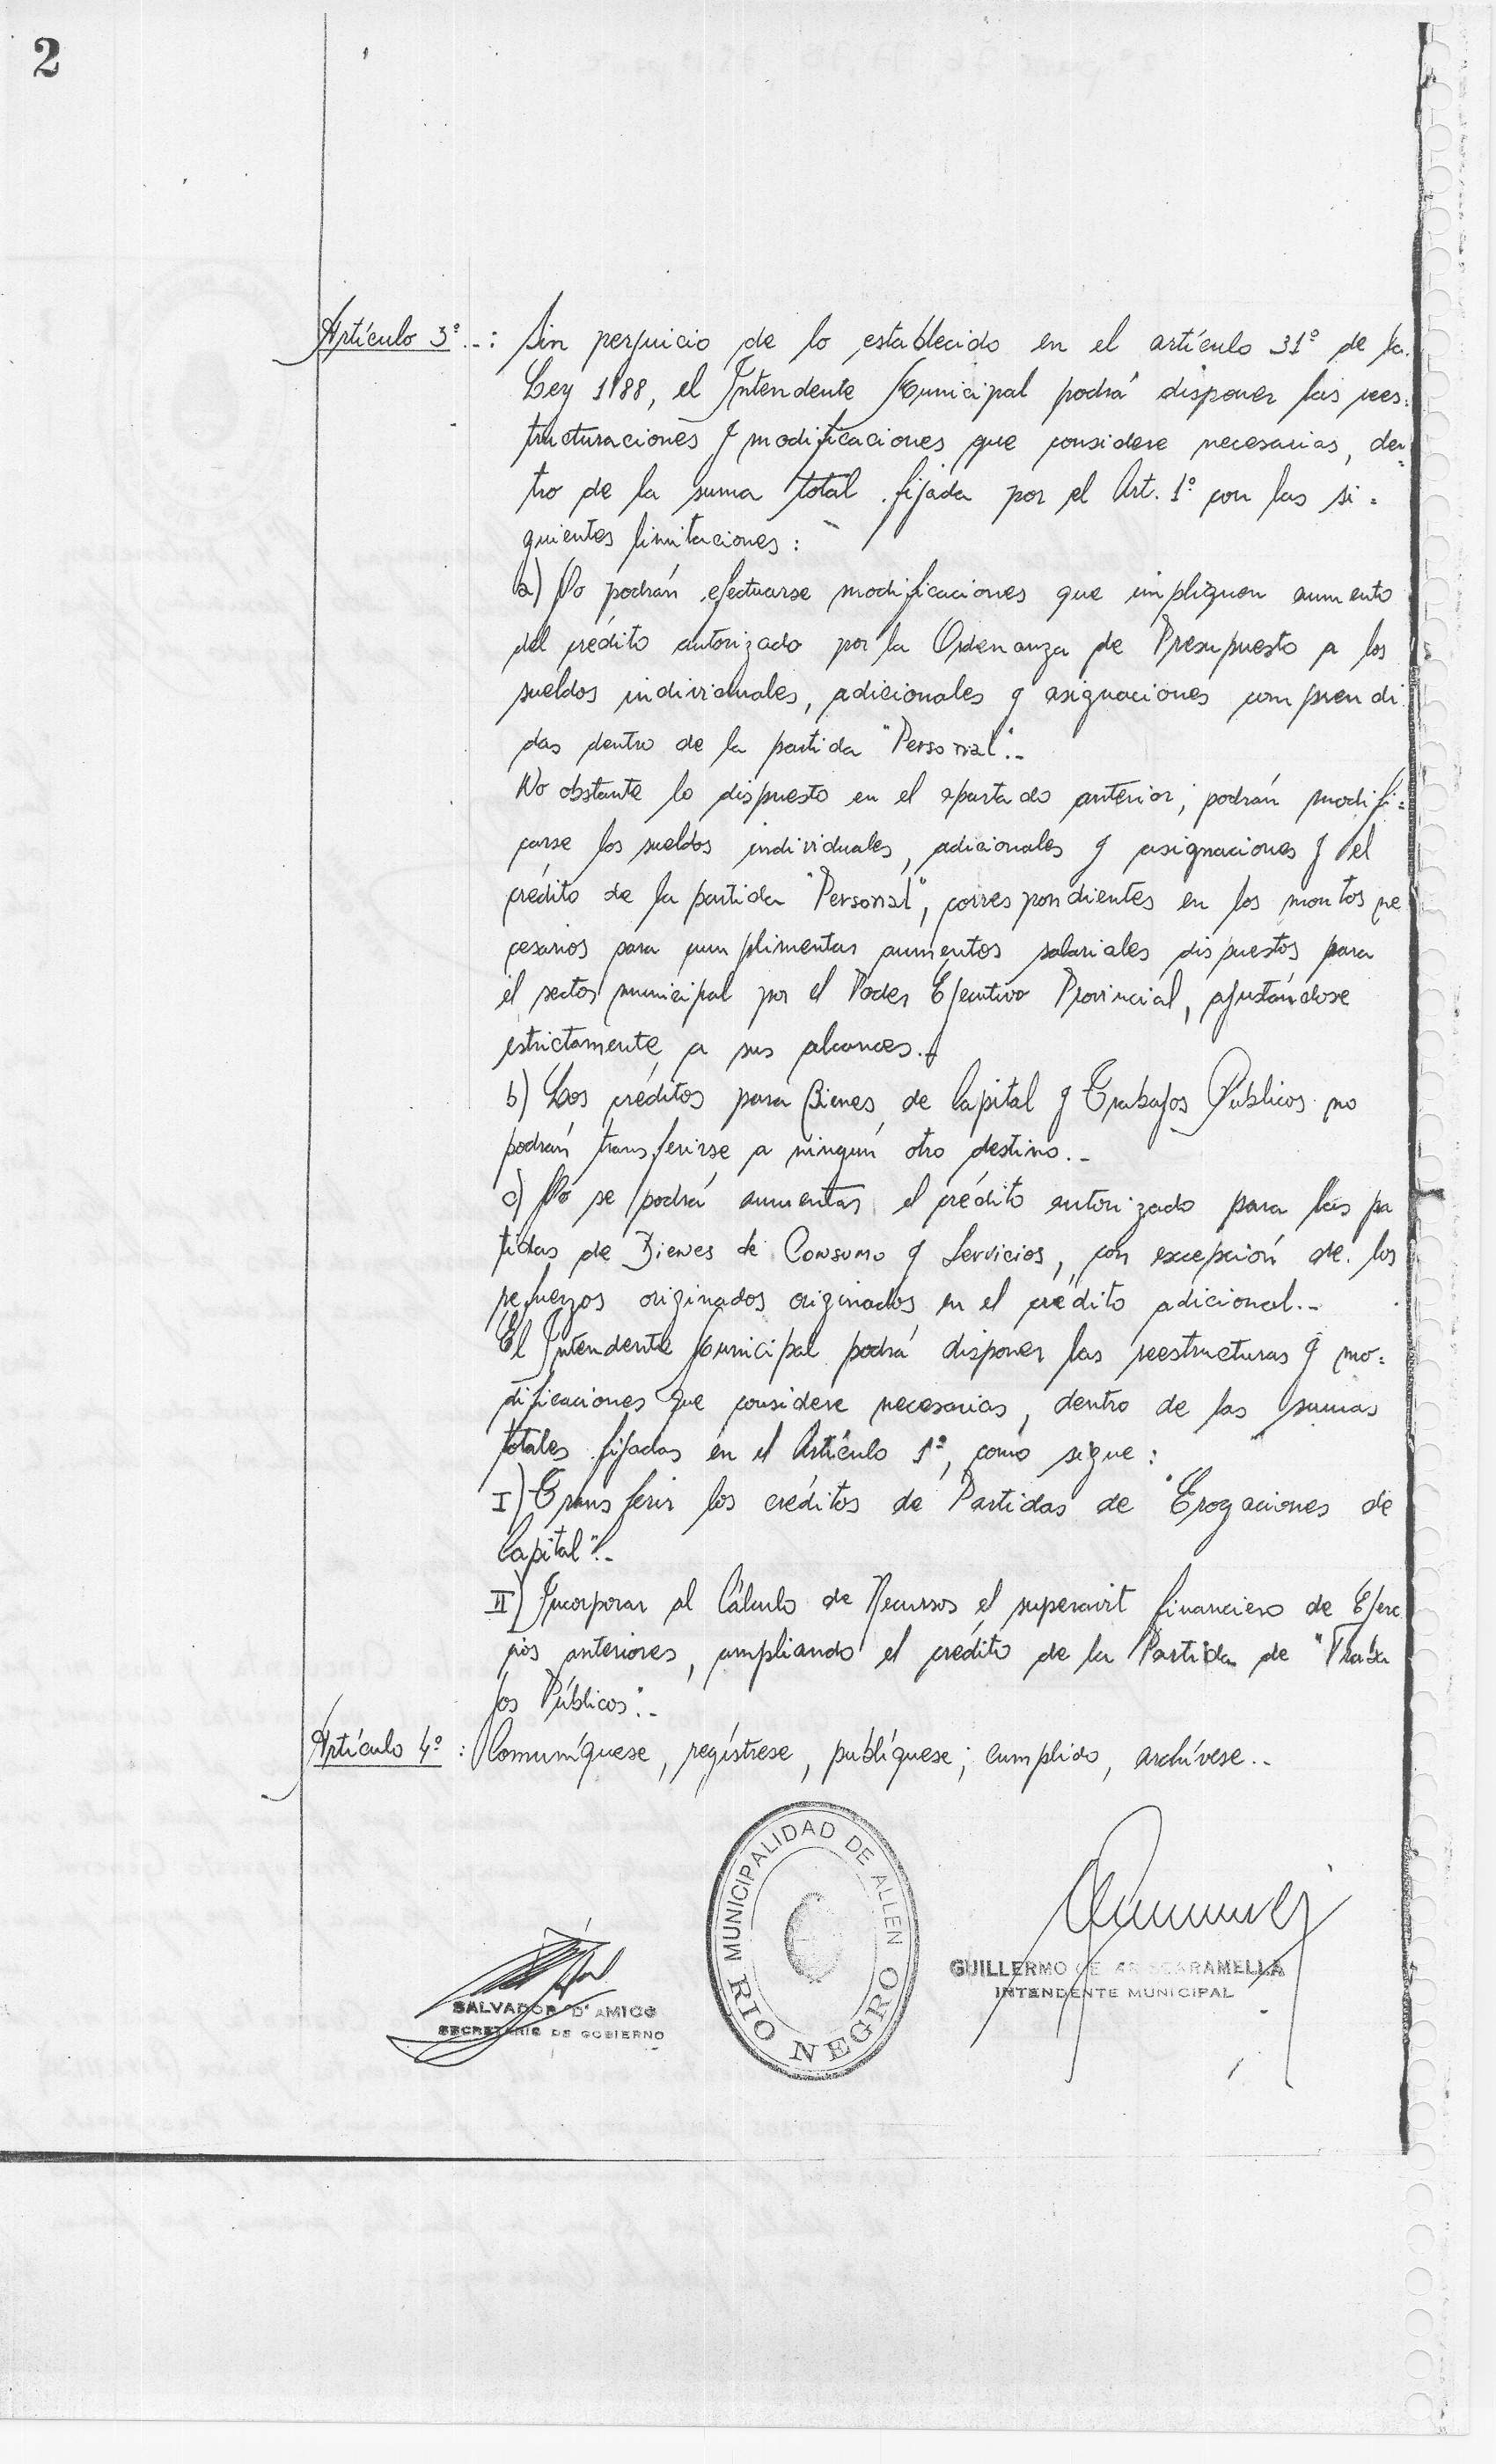 2
Artículo 3º.-: Sin perjuicio de lo establecido en el artículo 31º de la
Ley 1188, el Intendente Municipal podrá disponer las rees=
tructuraciones y modificaciones que considere necesarias, den=
tro de la suma total fijada por el Art. 1º con las si=
guientes limitaciones:
a) No podrán efectuarse modificaciones que impliquen aumento
del crédito autorizado por la Ordenanza de Presupuesto a los
sueldos individuales, adicionales y asignaciones comprendi
das dentro de la partida "Personal".-
No obstante lo dispuesto en el apartado anterior, podrán modifi=
carse los sueldos individuales, adicionales y asignaciones y el
crédito de la partida "Personal", correspondientes en los montos ne
cesarios para cumplimentar aumentos salariales dispuestos para
el sector municipal por el Poder Ejecutivo Provincial, ajustándose
estrictamente a sus alcances.-
b) Los créditos para Bienes de Capital y Trabajos Públicos no
podrán transferirse a ningún otro destino.-
c) No se podrá aumentar el crédito autorizado para las pa
tidas de Bienes de Consumo y Servicios, con excepción de los
refuerzos originados originados en el crédito adicional.-
El Intendente Municipal podrá disponer las reestructuras y mo=
dificaciones que considere necesarias, dentro de las sumas
totales fijadas en el Artículo 1º, como sigue:
I) Transferir los créditos de Partidas de "Erogaciones de
Capital".-
II) Incorporar al Cálculo de Recursos el superavit financiero de Ejerc
cios anteriores, ampliando el crédito de la Partida de "Traba
jos Públicos".-
Artículo 4º: Comuníquese, regístrese, publíquese; cumplido, archívese.-
MUNICIPALIDAD DE ALLEN
RIO NEGRO
SALVADOR D'AMICO
SECRETARIO DE GOBIERNO
GUILLERMO CARAMELLA
INTENDENTE MUNICIPAL